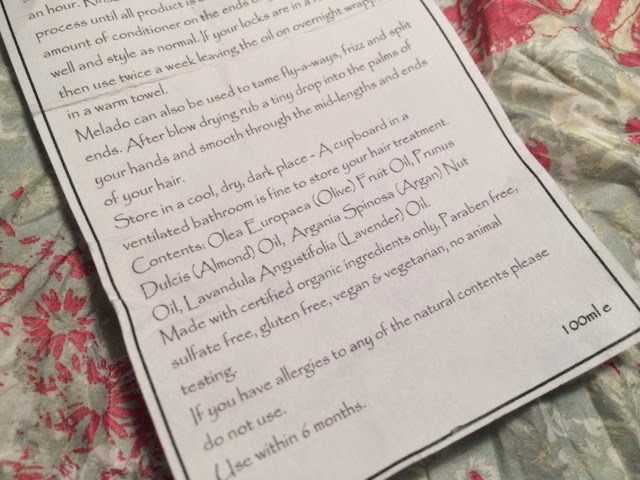 an hour.
process until all product is
amount of conditioner on the ends
well and style as normal. If your locks are in a
then use twice a week leaving the oil on overnight wrapp
in a warm towel.
Melado can also be used to tame fly-a-ways, frizz and split
ends. After blow drying rub a tiny drop into the palms of
your hands and smooth through the mid-lengths and ends
of your hair.
Store in a cool, dry, dark place - A cupboard in a
ventilated bathroom is fine to store your hair treatment.
Contents: Olea Europaea (Olive) Fruit Oil, Prunus
Dulcis (Almond) Oil, Argania Spinosa (Argan) Nut
Oil, Lavandula Angustifolia (Lavender) Oil.
Made with certified organic ingredients only, Paraben free,
sulfate free, gluten free, vegan & vegetarian, no animal
testing.
If you have allergies to any of the natural contents please
do not use.
Use within 6 months.
100ml e